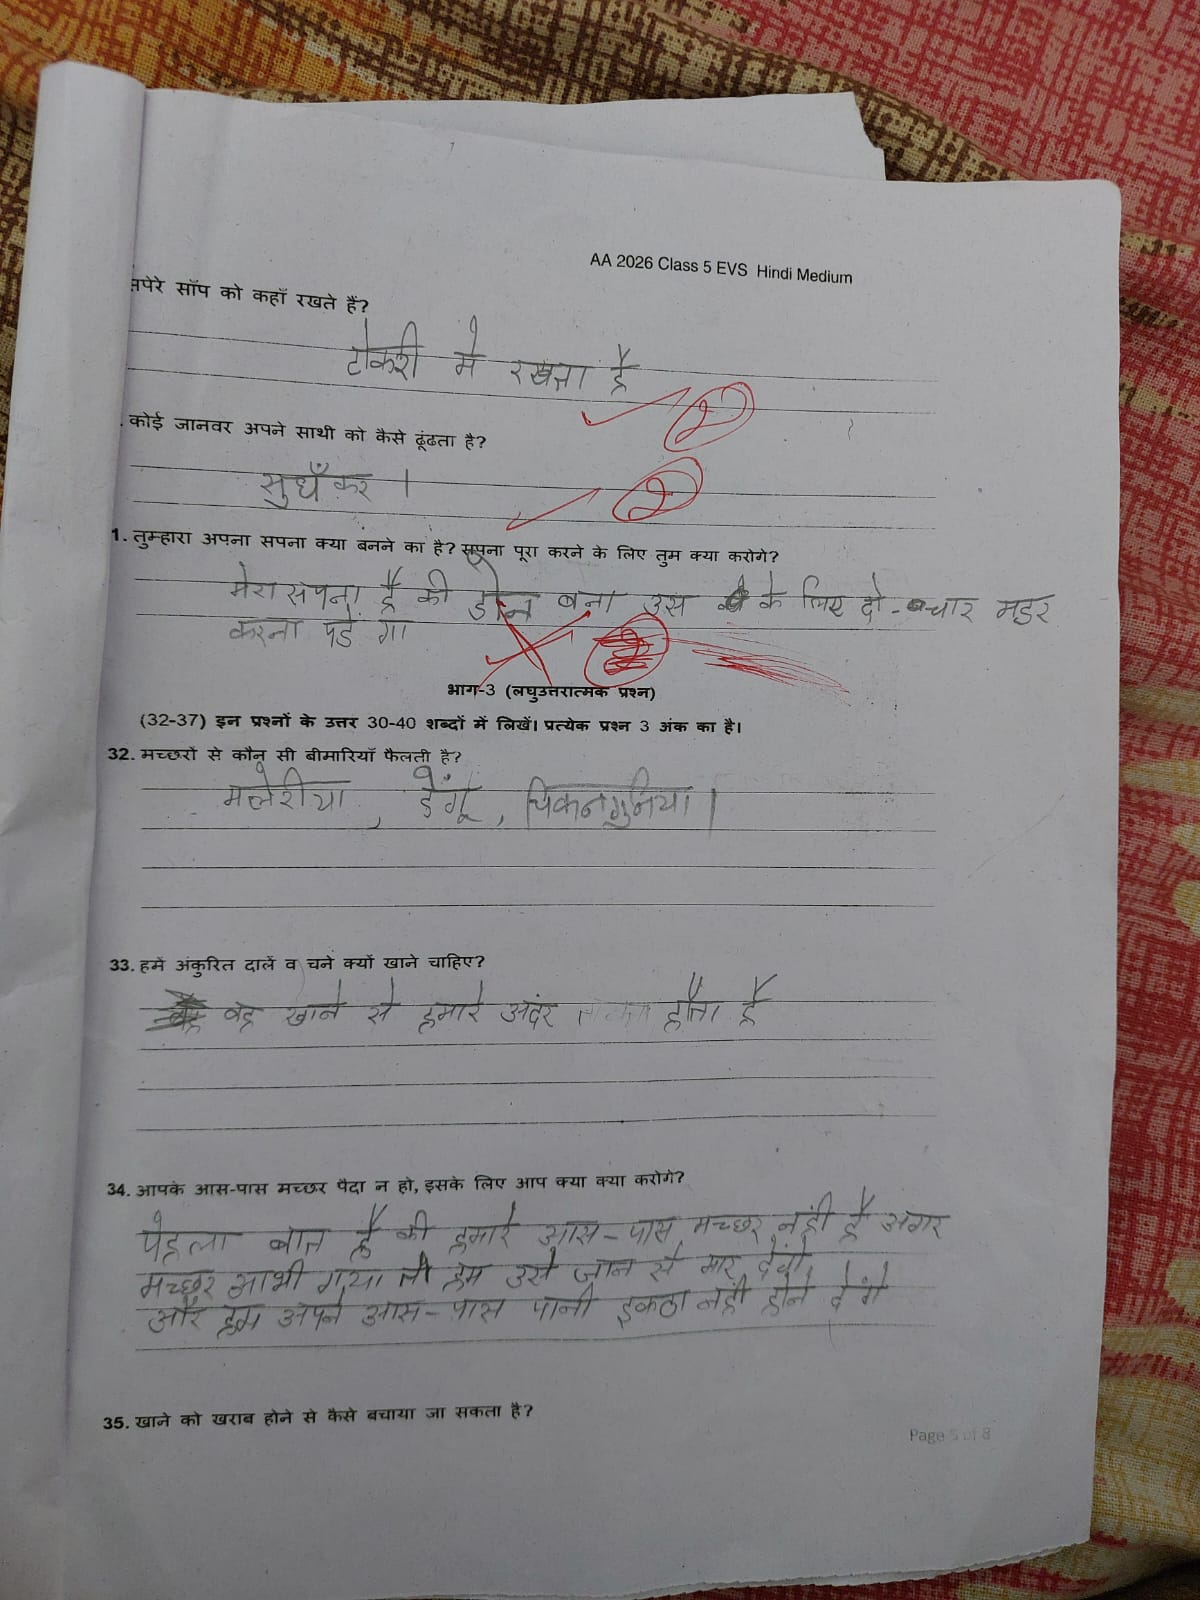 AA 2026 Class 5 EVS Hindi Medium
सपेरे साँप को कहाँ रखते हैं?
टोकरी मे रखता है
2
. कोई जानवर अपने साथी को कैसे ढूंढता है?
सुघँ कर ।
2
1. तुम्हारा अपना सपना क्या बनने का है? सपना पूरा करने के लिए तुम क्या करोगे?
मेरा सपना है की डोन बना उस के लिए दो-चार मडर
करना पडे गा
भाग-3 (लघुउत्तरात्मक प्रश्न)
(32-37) इन प्रश्नों के उत्तर 30-40 शब्दों में लिखें। प्रत्येक प्रश्न 3 अंक का है।
32. मच्छरों से कौन सी बीमारियाँ फैलती है?
मलेरीया, डेंगू, चिकनगुनिया |
33. हमें अंकुरित दालें व चने क्यों खाने चाहिए?
वह खाने से हमारे अदंर होता है
34. आपके आस-पास मच्छर पैदा न हो, इसके लिए आप क्या क्या करोगे?
पेहला बात है की हमारे आस-पास मच्छर नही है अगर
मच्छर आभी गया तो हम उसे जान से मार देंगे
और हम अपने आस-पास पानी इकठा नही होने दे गे
35. खाने को खराब होने से कैसे बचाया जा सकता है?
Page 5 of 8